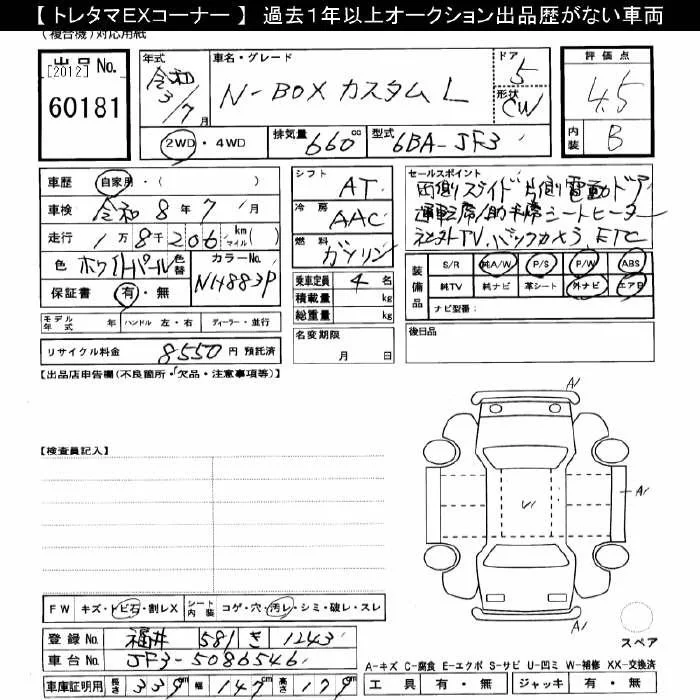 【 トレタマEXコーナー 】 過去１年以上オークション出品歴がない車両
(複合機)対応用紙
出品 No.
[2012]
60181
年式
令和
3/7月
車名・グレード
N-BOX カスタム L
ドア
5
形状
CW
評価点
4.5
内装
B
2WD・4WD
排気量 660 cc
型式 6BA-JF3
車歴 自家用・( )
車検 令和 8年 7月
走行 1万 8千 206 km マイル ( )
色 ホワイトパール 色替
カラーNo. NH883P
保証書 有・無
モデル年式 年 ハンドル 左・右 ディーラー・並行
リサイクル料金 8550 円 預託済
シフト AT
冷房 AAC
燃料 ガソリン
乗車定員 4 名
積載量 kg
総重量 kg
名変期限
月 日
セールスポイント
両側スライド片側電動ドア
運転席/助手席シートヒーター
社外TV.バックカメラ ETC
装備品 S/R 純A/W P/S P/W ABS
純TV 純ナビ 革シート 外ナビ エアB
ナビ型番:
後日品
【出品店申告欄(不良箇所・欠品・注意事項等)】
【検査員記入】
A1
A1
A1
FW キズ・トビ石・割レX シート内装 コゲ・穴・汚レ・シミ・破レ・スレ
登録 No. 福井 581 き 1243
車台 No. JF3-5086546
車庫証明用 長さ 339 cm 幅 147 cm 高さ 179 cm
スペア
A-キズ C-腐食 E-エクボ S-サビ U-凹ミ W-補修 XX-交換済
工具 有・無 ジャッキ 有・無